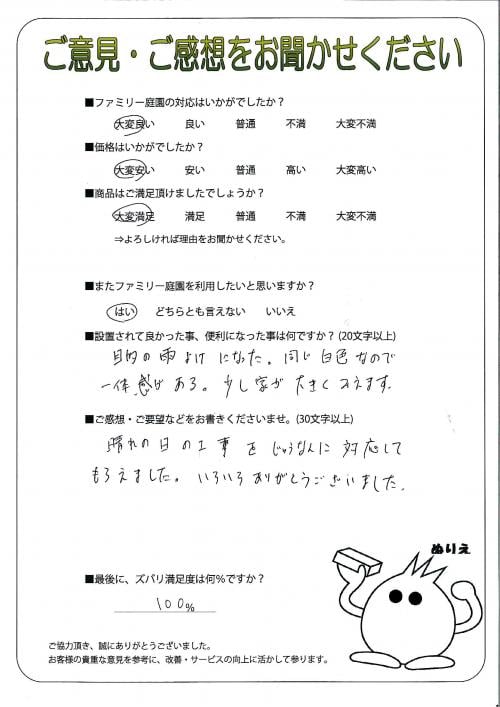 ご意見・ご感想をお聞かせください
■ファミリー庭園の対応はいかがでしたか?
大変良い 良い 普通 不満 大変不満
■価格はいかがでしたか?
大変安い 安い 普通 高い 大変高い
■商品はご満足頂けましたでしょうか?
大変満足 満足 普通 不満 大変不満
⇒よろしければ理由をお聞かせください。
■またファミリー庭園を利用したいと思いますか?
はい どちらとも言えない いいえ
■設置されて良かった事、便利になった事は何ですか?(20文字以上)
目的の雨よけになった。同じ白色なので
一体感がある。少し家が大きくみえます.
■ご感想・ご要望などをお書きくださいませ。(30文字以上)
晴れの日の工事をじゅうなんに対応して
もらえました。いろいろありがとうございました.
ぬりえ
■最後に、ズバリ満足度は何%ですか?
100%
ご協力頂き、誠にありがとうございました。
お客様の貴重な意見を参考に、改善・サービスの向上に活かして参ります。